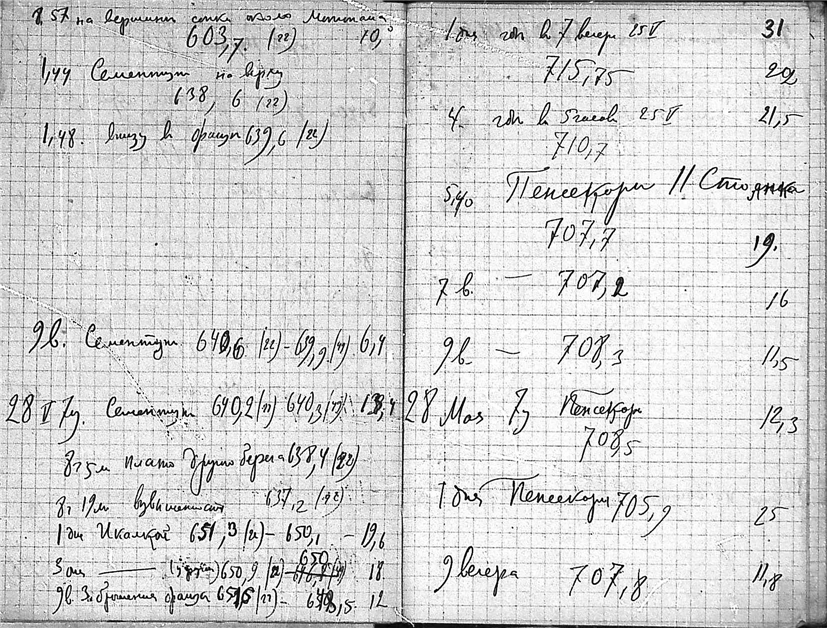 8,57 на вершине сопки около
603,7. (22) 10,0
1,44 Сементут на верху
638,6 (22)
1,48. внизу в овраге 639,6 (22)
9 в. Сементут 640,6 (22) – 639,9 (44) 6,4
28 V 7 у. Сементут 640,2 (22) 640,3 (44) 13,4
8 г 5 м плато другого берега 638,4 (22)
8 г 19 м возвышенность 637,2 (22)
1 дн Икалкой 651,3 (22) – 650,1 – 19,6
3 дн — 650,9 (22) 650 18
9 в. оврага (22) – 12
31
1 дня в 7 вечер 25 V
715,75 22
4 в 5 часов 25 V 21,5
710,7
5,40 Пенсекори II Стоянка
707,7 19.
7 в. — 707,2 16
9 в — 708,3 11,5
28 Мая 7 у Пенсекори 12,3
708,5
1 дня Пенсекори 705,9 25
9 вечера 707,8 11,8